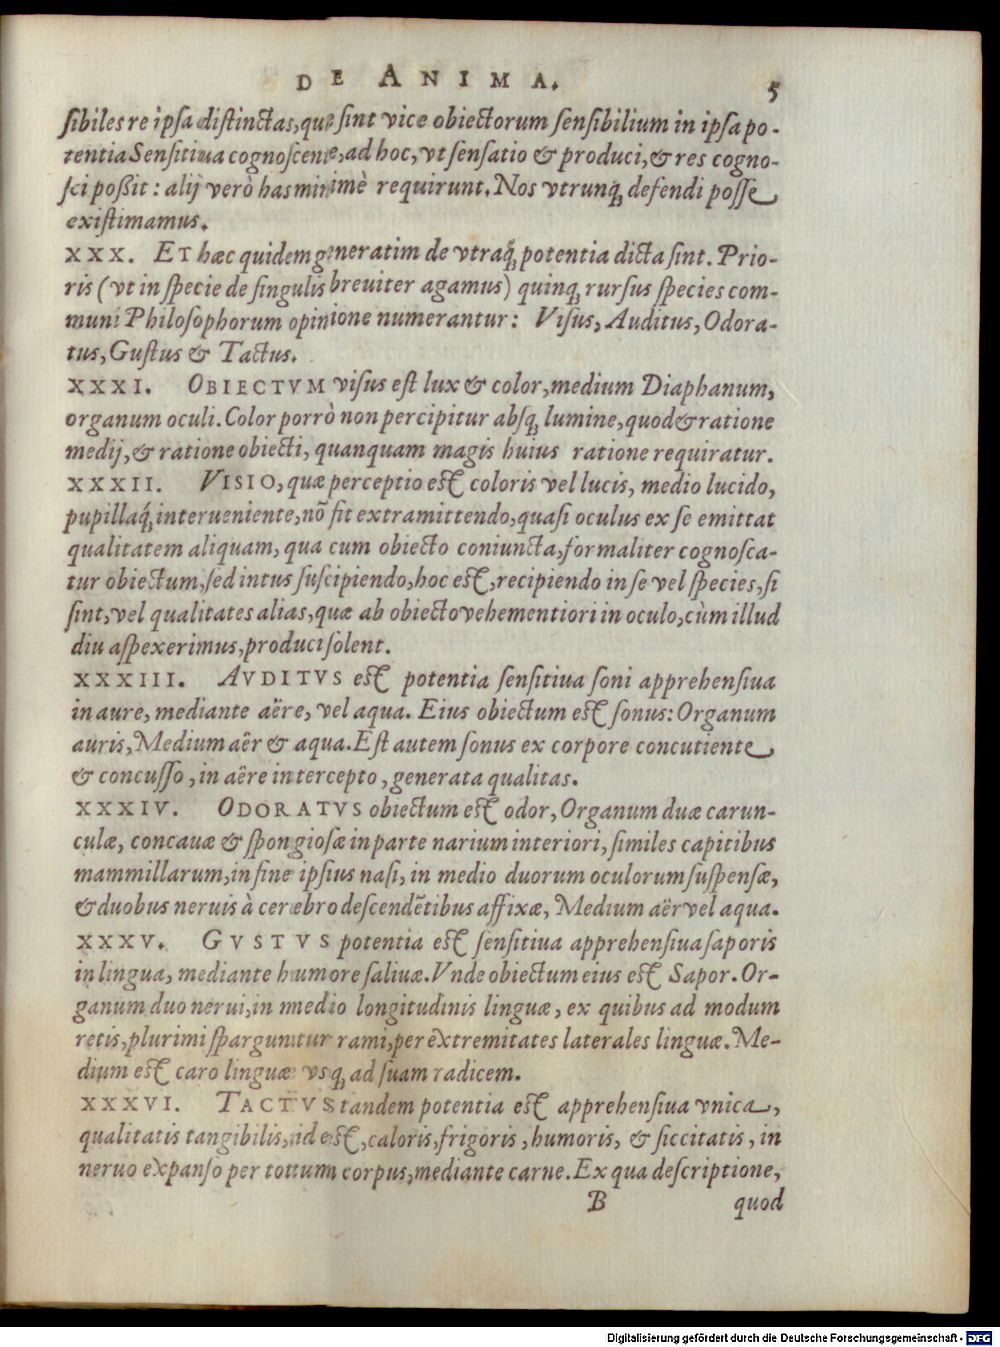 DE ANIMA. 5
sibiles re ipsa distinctas, quę sint vice obiectorum sensibilium in ipsa po-
tentia Sensitiua cognoscente, ad hoc, vt sensatio & produci, & res cogno-
sci poßit: alij verò has minimè requirunt. Nos vtrunq; defendi posse
existimamus.
XXX. ET hæc quidem generatim de vtraq́; potentia dicta sint. Prio-
ris (vt in specie de singulis breuiter agamus) quinq; rursus species com-
muni Philosophorum opinione numerantur: Visus, Auditus, Odora-
tus, Gustus & Tactus.
XXXI. OBIECTVM visus est lux & color, medium Diaphanum,
organum oculi. Color porrò non percipitur absq; lumine, quod & ratione
medij, & ratione obiecti, quanquam magis huius ratione requiratur.
XXXII. VISIO, quæ perceptio est coloris vel lucis, medio lucido,
pupillaq́; interueniente, nō fit extramittendo, quasi oculus ex se emittat
qualitatem aliquam, qua cum obiecto coniuncta, formaliter cognosca-
tur obiectum, sed intus suscipiendo, hoc est, recipiendo in se vel species, si
sint, vel qualitates alias, quæ ab obiecto vehementiori in oculo, cùm illud
diu aspexerimus, produci solent.
XXXIII. AVDITVS est potentia sensitiua soni apprehensiua
in aure, mediante aëre, vel aqua. Eius obiectum est sonus: Organum
auris, Medium aër & aqua. Est autem sonus ex corpore concutiente
& concusso, in aëre intercepto, generata qualitas.
XXXIV. ODORATVS obiectum est odor, Organum duæ carun-
culæ, concauæ & spongiosæ in parte narium interiori, similes capitibus
mammillarum, in fine ipsius nasi, in medio duorum oculorum suspensæ,
& duobus neruis à cerebro descendētibus affixæ, Medium aër vel aqua.
XXXV. GVSTVS potentia est sensitiua apprehensiua saporis
in lingua, mediante humore saliuæ. Vnde obiectum eius est Sapor. Or-
ganum duo nerui, in medio longitudinis linguæ, ex quibus ad modum
retis, plurimi sparguntur rami, per extremitates laterales linguæ. Me-
dium est caro linguæ vsq; ad suam radicem.
XXXVI. TACTVS tandem potentia est apprehensiua vnica,
qualitatis tangibilis, id est, caloris, frigoris, humoris, & siccitatis, in
neruo expanso per totum corpus, mediante carne. Ex qua descriptione,
B quod
Digitalisierung gefördert durch die Deutsche Forschungsgemeinschaft - DFG